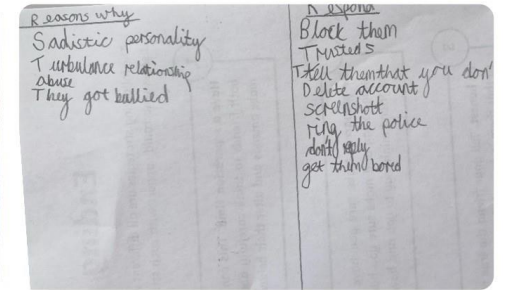 Reasons why
Sadistic personality
Turbulance relationship
abuse
They got bullied
Respond
Block them
Trusted s
Tell them that you don'
Delete account
screenshott
ring the police
don't reply
get them bored